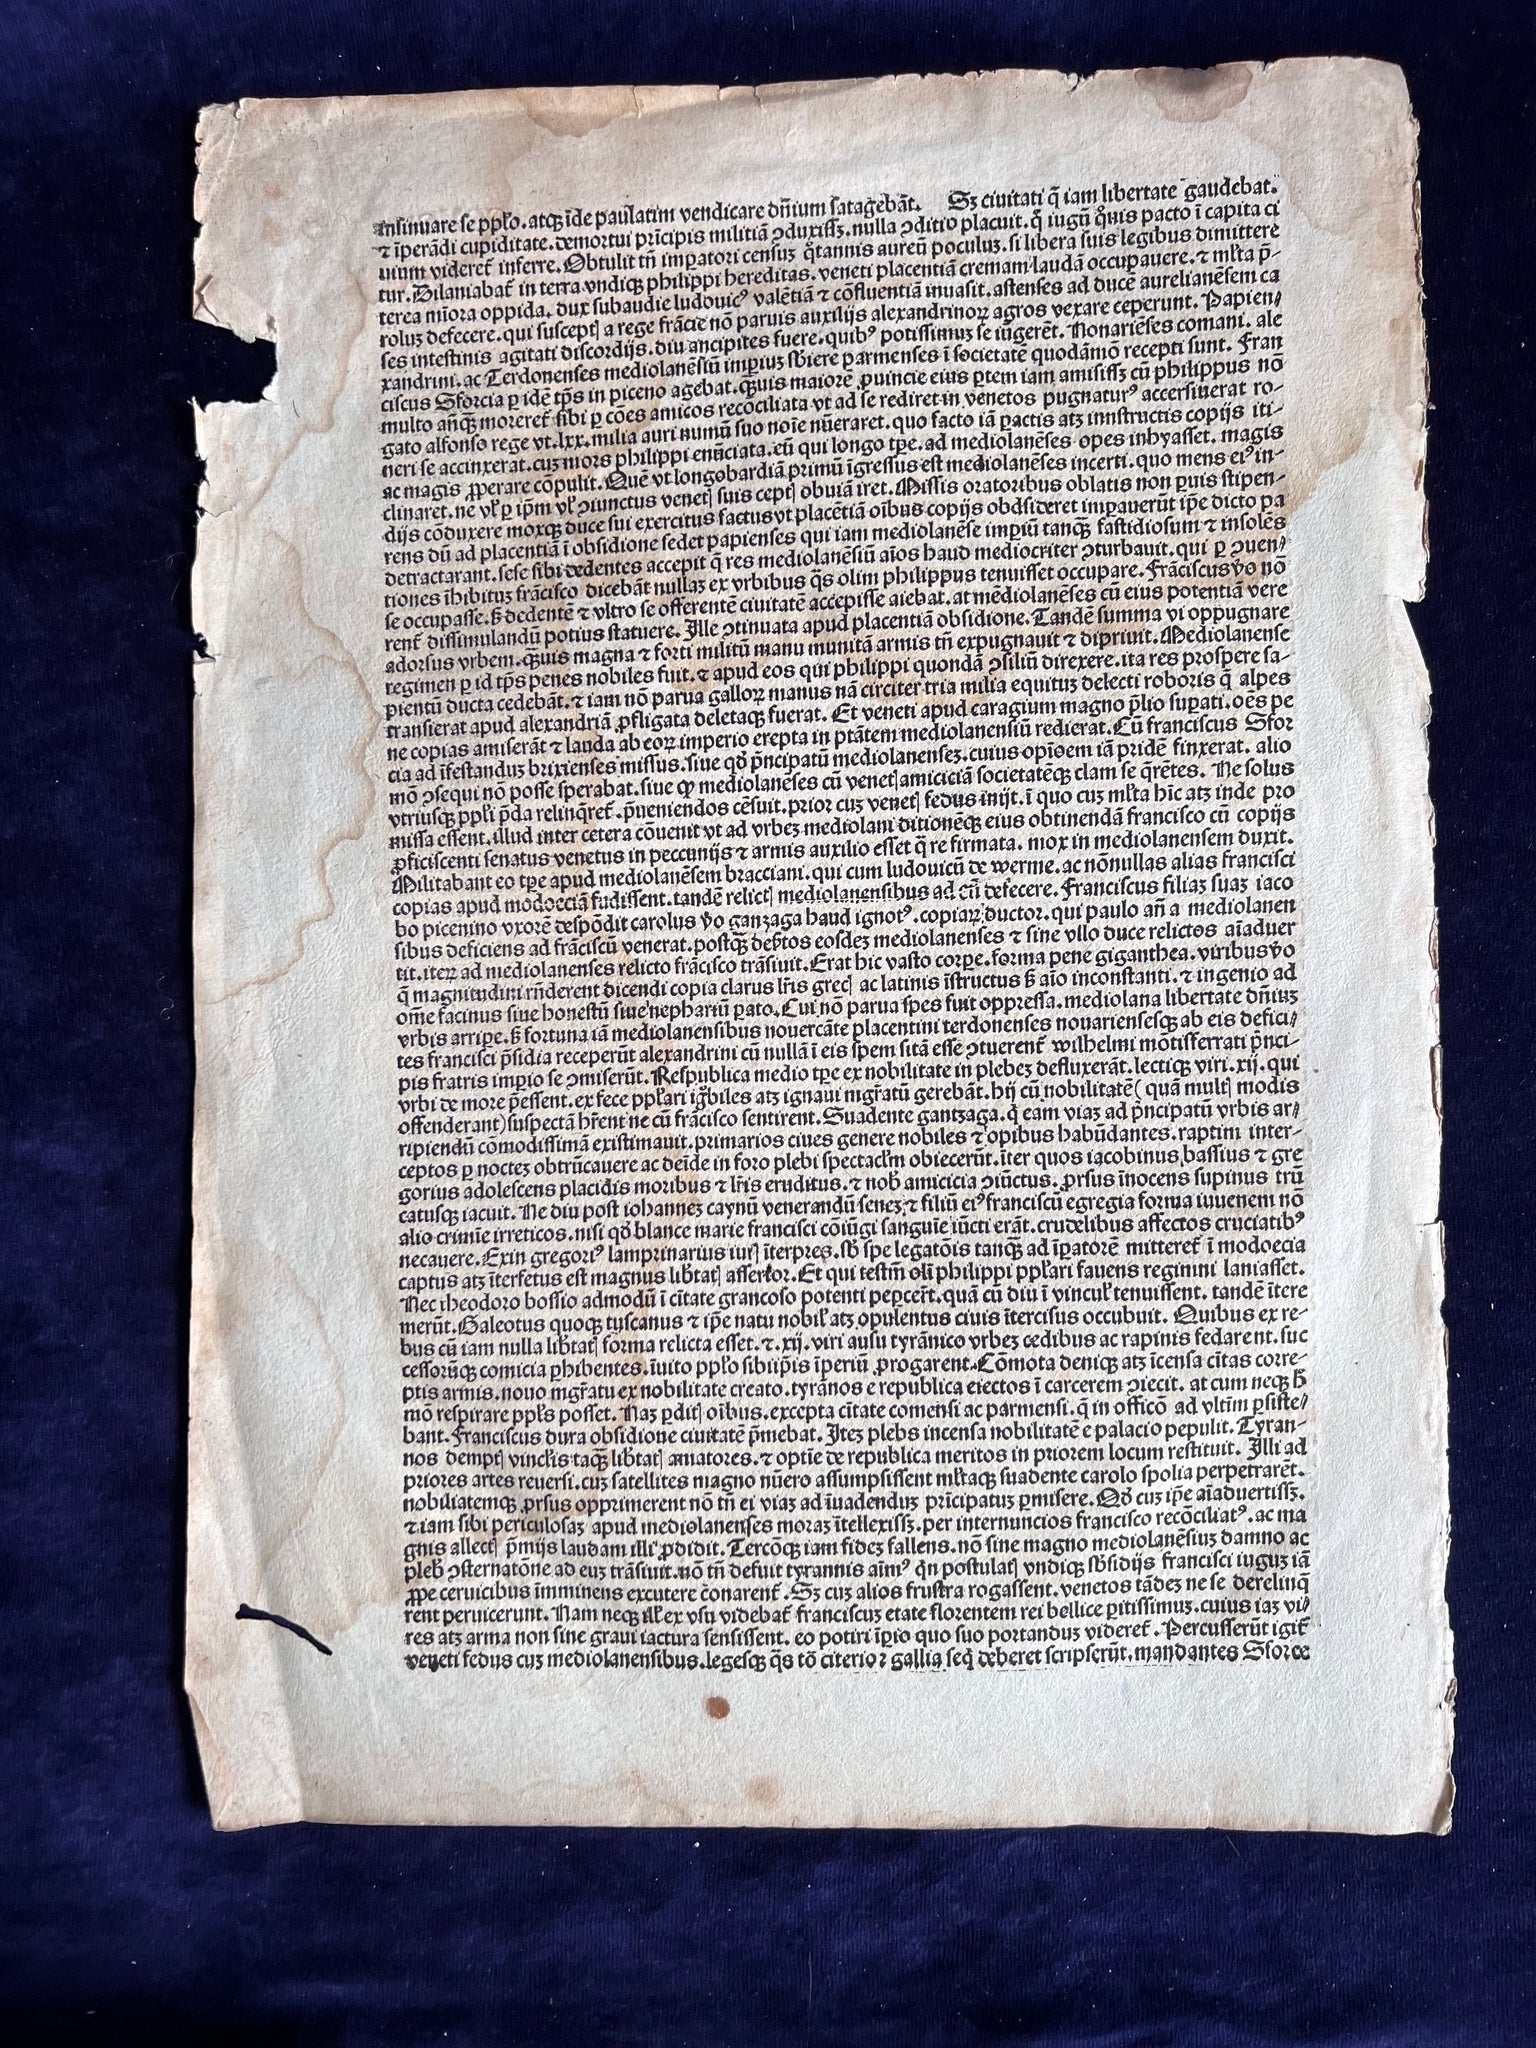 insinuare se pp̄lo. atqꝫ īde paulatim vendicare dn̄ium satagebāt. Sꝫ ciuitati q̄ iam libertate gaudebat.
⁊ īperādi cupiditate. demortui prīcipis militiā ꝯduxissꝫ. nulla ꝯditio placuit. q̄ iugū q̊uis pacto ī capita ci
uium videret̄ inferre. Obtulit tn̄ imꝑatori censuꝫ q̊tannis aureū poculuꝫ. si libera suis legibus dimittere
tur. Dilaniabat̄ in terra vndiqꝫ philippi hereditas. veneti placentiā cremam laudā occupauere. ⁊ ml̄ta p̄-
terea mīora oppida. dux subaudie ludouicꝰ valētiā ⁊ cōfluentiā inuasit. astenses ad ducē aurelianēsem ca
roluꝫ defecere. qui susceptꝭ a rege frācie nō paruis auxilijs alexandrinoꝝ agros vexare ceperunt. Papien/
ses intestinis agitati discordijs. diu ancipites fuere. quibꝰ potissimuꝫ se iūgerēt. Nonariēses comani. ale
xandrini. ac Terdonenses mediolanēsiū imperiuꝫ sb̄iere parmenses ī societatē quodāmō recepti sunt. Fran
ciscus Sforcia ꝑ idē tp̄s in piceno agebat. q̄uis maiorē ꝓuincie eius ꝑtem iam amisissꝫ cū philippus nō
multo an̄qꝫ moreret̄ sibi ꝑ cōes amicos recōciliata vt ad se rediret in venetos pugnaturꝰ accersiuerat ro-
gato alfonso rege vt. lxx. milia auri numū suo noīe nūeraret. quo facto iā ꝑactis atꝫ innstructis copijs iti-
neri se accinxerat. cuꝫ mors philippi enūciata. eū qui longo tꝑe. ad mediolanēses opes inhyasset. magis
ac magis ꝓperare cōpulit. Quē vt longobardiā primū īgressus est mediolanēses incerti. quo mens eiꝰ in-
clinaret. ne vl̄ ꝑ ip̄m vl̄ ꝯiunctus venetꝭ suis ceptꝭ obuiā iret. Missis oratoribus oblatis non ꝑuis stipen-
dijs cōduxere moxqꝫ duce sui exercitus factus vt placētiā oībus copijs obdsideret imꝑauerūt ip̄e dicto pa
rens dū ad placentiā ī obsidione sedet papienses qui iam mediolanēse imꝑiū tanqꝫ fastidiosum ⁊ insolēs
detractarant. sese sibi dedentes accepit q̄ res mediolanēsiū aīos haud mediocriter ꝯturbauit. qui ꝑ ꝯuen/
tiones īhibituꝫ frācisco dicebāt nullaꝫ ex vrbibus q̄s olim philippus tenuisset occupare. Frāciscus v̊o nō
se occupasse. s̄ dedentē ⁊ vltro se offerentē ciuitatē accepisse aiebat. at mediolanēses cū eius potentiā vere
rent̄ dissimulandū potius statuere. Ille ꝯtinuata apud placentiā obsidione. Tandē summa vi oppugnare
adorsus vrbem. q̄uis magna ⁊ forti militū manu munitā armis tn̄ expugnauit ⁊ diripuit. Mediolanense
regimen ꝑ id tp̄s penes nobiles fuit. ⁊ apud eos qui philippi quondā ꝯsiliū direxere. ita res prospere sa-
pientū ducta cedebāt. ⁊ iam nō parua galloꝝ manus nā circiter tria milia equituꝫ delecti roboris q̄ alpes
transierat apud alexandriā ꝓfligata deletaqꝫ fuerat. Et veneti apud caragium magno p̄lio suꝑati. oēs pe
ne copias amiserāt ⁊ lauda ab eoꝝ imperio erepta in ptātem mediolanensiū redierat. Cū franciscus Sfor
cia ad īfestanduꝫ brixienses missus. siue qd̄ p̄ncipatū mediolanenseꝫ. cuius opīoem iā pridē finxerat. alio
mō ꝯsequi nō posse sperabat. siue qꝫ mediolanēses cū venetꝭ amiciciā societatēqꝫ clam se q̄rētes. Ne solus
vtriusqꝫ pp̄li p̄da relinq̄ret̄. p̄ueniendos cēsuit. prior cuꝫ venetꝭ fedus inijt. ī quo cuꝫ ml̄ta hīc atꝫ inde pro
missa essent. illud inter cetera cōuenit vt ad vrbeꝫ mediolani ditionēqꝫ eius obtinendā francisco cū copijs
ꝓficiscenti senatus venetus in peccunijs ⁊ armis auxilio esset q̄ re firmata. mox in mediolanensem duxit.
Militabant eo tꝑe apud mediolanēsem bracciani. qui cum ludouicū de werme. ac nōnullas alias francisci
copias apud modoeciā fudissent. tandē relictꝭ mediolanensibus ad eū defecere. Franciscus filiaꝫ suaꝫ iaco
bo picenino vxorē despōdit carolus v̊o ganzaga haud ignotꝰ. copiaꝝ ductor. qui paulo an̄ a mediolanen
sibus deficiens ad frāciscū venerat. postqꝫ deb̄tos eosdeꝫ mediolanenses ⁊ sine vllo duce relictos aīaduer
tit. iteꝝ ad mediolanenses relicto frācisco trāsiuit. Erat hic vasto corꝑe. forma pene giganthea. viribus v̊o
q̄ magnitudini rn̄derent dicendi copia clarus lr̄is grecꝭ ac latinis īstructus s̄ aīo inconstanti. ⁊ ingenio ad
om̄e facinus siue honestū siue nephariū ꝑato. Cui nō parua spes fuit oppressa. mediolana libertate dn̄iuꝫ
vrbis arriꝑe. s̄ fortuna iā mediolanensibus nouercāte placentini terdonenses nouariensesqꝫ ab eis defici/
tes francisci p̄sidia receperūt alexandrini cū nullā ī eis spem sitā esse ꝯtuerent̄ wilhelmi mōtisferrati p̄nci-
pis fratris imꝑio se ꝯmiserūt. Respublica medio tꝑe ex nobilitate in plebeꝫ defluxerāt. lectiqꝫ viri. xij. qui
vrbi de more p̄essent. ex fece pp̄lari ig̊biles atꝫ ignaui mgr̄atū gerebāt. hij cū nobilitatē (quā multꝭ modis
offenderant) suspectā hr̄ent ne cū frācisco sentirent. Suadente gantzaga. q̄ eam viaꝫ ad p̄ncipatū vrbis ar/
ripiendū cōmodissimā existimauit. primarios ciues genere nobiles ⁊ opibus habūdantes. raptim inter-
ceptos ꝑ nocteꝫ obtrūcauere ac deīde in foro plebi spectacl̄m obiecerūt. īter quos iacobinus bassius ⁊ gre
gorius adolescens placidis moribus ⁊ lr̄is eruditus. ⁊ nob̄ amicicia ꝯiūctus. ꝓrsus īnocens supinus trū
catusqꝫ iacuit. Ne diu post iohanneꝫ caynū venerandū seneꝫ ⁊ filiū eiꝰ franciscū egregia forma iuuenem nō
alio crimīe irreticos. nisi qd̄ blance marie francisci cōiūgi sanguīe iūcti erāt. crudelibus affectos cruciatibꝰ
necauere. Exin gregoriꝰ lamprinarius iurꝭ īterpres. sb̄ spe legatōis tanqꝫ ad īꝑatorē mitteret̄ ī modoecia
captus atꝫ īterfetus est magnus lib̄tatꝭ assertor. Et qui testm̄ oli philippi pp̄lari fauens reginini laniasset.
Nec theodoro bossio admodū ī cītate grancoso potenti peꝑcēt. quā cū diu ī vincul̄ tenuissent. tandē ītere
merūt. Galeotus quoqꝫ tuscanus ⁊ ip̄e natu nobil̄ atꝫ opulentus ciuis ītercisus occubuit. Quibus ex re-
bus cū iam nulla lib̄tatꝭ forma relicta esset. ⁊. xij. viri ausu tyrānico vrbeꝫ cedibus ac rapinis fedarent. suc
cessorūqꝫ comicia ꝓhibentes. īuito pp̄lo sibiip̄is īperiū ꝓrogarent. Cōmota deniqꝫ atꝫ īcensa cītas corre-
ptis armis. nouo mgr̄atu ex nobilitate creato. tyrānos e republica eiectos ī carcerem ꝯiecit. at cum neqꝫ s̄
mō respirare pp̄ls posset. Naꝫ ꝑditꝭ oībus. excepta cītate comensi ac parmensi. q̄ in officō ad vltīm ꝑsiste/
bant. Franciscus dura obsidione ciuitatē p̄mebat. Iteꝫ plebs incensa nobilitatē e palacio pepulit. Tyran-
nos demptꝭ vincl̄is taqꝫ lib̄tatꝭ amatores. ⁊ optīe de republica meritos in priorem locum restituit. Illi ad
priores artes reuersi. cuꝫ satellites magno nūero assumpsissent ml̄taqꝫ suadente carolo spolia perpetrarēt.
nobiliatemqꝫ ꝓrsus opprimerent nō tn̄ ei viaꝫ ad īuadenduꝫ prīcipatuꝫ ꝑmisere. Qd̄ cuꝫ ip̄e aīaduertissꝫ.
⁊ iam sibi periculosaꝫ apud mediolanenses moraꝫ ītellexissꝫ. per internuncios francisco recōciliatꝰ. ac ma
gnis allectꝭ p̄mijs laudam illi ꝓdidit. Tercōqꝫ iam fideꝫ fallens. nō sine magno mediolanēsiuꝫ damno ac
pleb̄ ꝯsternatōne ad euꝫ trāsiuit. nō tn̄ defuit tyrannis aīmꝰ q̄n postulatꝭ vndiqꝫ sb̄sidijs francisci iuguꝫ iā
ꝓpe ceruicibus īmminens excutere cōnarent̄. Sꝫ cuꝫ alios frustra rogassent. venetos tādeꝫ ne se derelinq̄
rent peruicerunt. Nam neqꝫ ill̄ ex vsu videbat̄ franciscuꝫ etate florentem rei bellice ꝑitissimuꝫ. cuius iaꝫ vi/
res atꝫ arma non sine graui iactura sensissent. eo potiri īꝑio quo suo portanduꝫ videret̄. Percusserūt igit̄
veneti fedus cuꝫ mediolanensibus. legesqꝫ q̄s tō citerior gallia seq̄ deberet scripserūt. mandantes Sforce